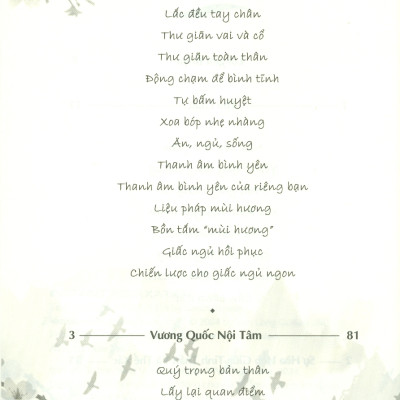 Lắc đều tay chân
Thư giãn vai và cổ
Thư giãn toàn thân
Động chạm để bình tĩnh
Tự bấm huyệt
Xoa bóp nhẹ nhàng
Ăn, ngủ, sống
Thanh âm bình yên
Thanh âm bình yên của riêng bạn
Liệu pháp mùi hương
Bồn tắm "mùi hương"
Giấc ngủ hồi phục
Chiến lược cho giấc ngủ ngon
3 Vương Quốc Nội Tâm 81
Quý trọng bản thân
Lấy lại quan điểm